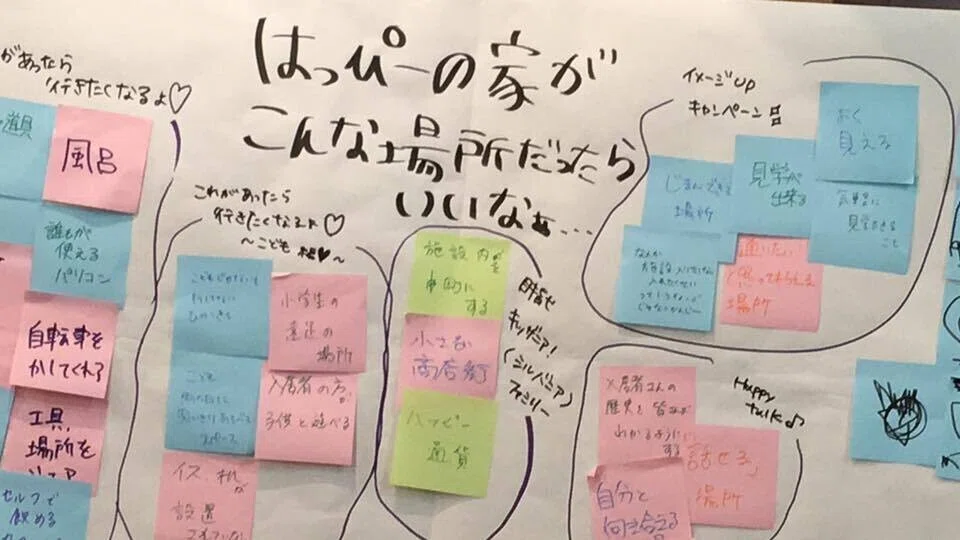 はっぴーの家が
こんな場所だったら
いいなぁ…
があったら
行きたくなるよ♡
道具
風呂
誰もが
使える
パソコン
自転車を
かしてくれる
工具、
場所を
シェア
セルフで
飲める
これがあったら
行きたくなるよ♡
〜こども
小学生の
遠足の
場所
こども
スペース
入居者の方が
子供と遊べる
イス、机が
設置
されている
施設内を
町に
する
小さな
商店街
ハッピー
通貨
キッザニア!
(シルバニア)
ファミリー
イメージUP
キャンペーン
よく
見える
見学が
出来る
じまんできる
場所
気軽に
見学できる
こと
通いたい
と思ってもらえる
場所
なんか
施設
Happy
talk♪
入居者さんの
歴史を皆が
わかるように
する
「話せる」
場所
自分と
向き合える